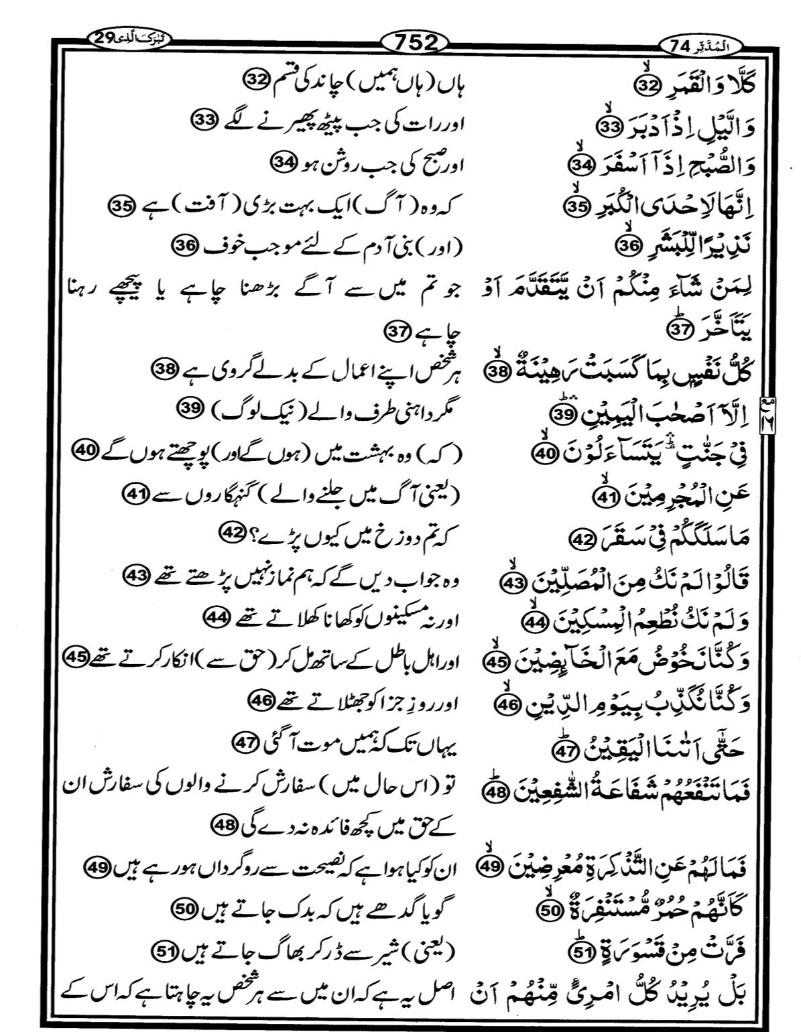 المدثر 74 752 تبرک الذی 29
كَلَّا وَالْقَمَرِ ﴿32﴾ ہاں (ہاں ہمیں) چاند کی قسم ﴿32﴾
وَالَّيْلِ اِذْ اَدْبَرَ ﴿33﴾ اور رات کی جب پیٹھ پھیرنے لگے ﴿33﴾
وَالصُّبْحِ اِذَآ اَسْفَرَ ﴿34﴾ اور صبح کی جب روشن ہو ﴿34﴾
اِنَّهَا لَاِحْدَى الْكُبَرِ ﴿35﴾ کہ وہ (آگ) ایک بہت بڑی (آفت) ہے ﴿35﴾
نَذِيْرًا لِّلْبَشَرِ ﴿36﴾ (اور) بنی آدم کے لئے موجب خوف ﴿36﴾
لِمَنْ شَآءَ مِنْكُمْ اَنْ يَّتَقَدَّمَ اَوْ جو تم میں سے آگے بڑھنا چاہے یا پیچھے رہنا
يَتَاَخَّرَ ﴿37﴾ چاہے ﴿37﴾
كُلُّ نَفْسٍۭ بِمَا كَسَبَتْ رَهِيْنَةٌ ﴿38﴾ ہر شخص اپنے اعمال کے بدلے گروی ہے ﴿38﴾
اِلَّآ اَصْحٰبَ الْيَمِيْنِ ﴿39﴾ مگر داہنی طرف والے (نیک لوگ) ﴿39﴾
فِيْ جَنّٰتٍ يَتَسَآءَلُوْنَ ﴿40﴾ (کہ) وہ بہشت میں (ہوں گے اور) پوچھتے ہوں گے ﴿40﴾
عَنِ الْمُجْرِمِيْنَ ﴿41﴾ (یعنی آگ میں جلنے والے) گنہگاروں سے ﴿41﴾
مَا سَلَكَكُمْ فِيْ سَقَرَ ﴿42﴾ کہ تم دوزخ میں کیوں پڑے؟ ﴿42﴾
قَالُوْا لَمْ نَكُ مِنَ الْمُصَلِّيْنَ ﴿43﴾ وہ جواب دیں گے کہ ہم نماز نہیں پڑھتے تھے ﴿43﴾
وَلَمْ نَكُ نُطْعِمُ الْمِسْكِيْنَ ﴿44﴾ اور نہ مسکینوں کو کھانا کھلاتے تھے ﴿44﴾
وَكُنَّا نَخُوْضُ مَعَ الْخَآئِضِيْنَ ﴿45﴾ اور اہل باطل کے ساتھ مل کر (حق سے) انکار کرتے تھے ﴿45﴾
وَكُنَّا نُكَذِّبُ بِيَوْمِ الدِّيْنِ ﴿46﴾ اور روز جزا کو جھٹلاتے تھے ﴿46﴾
حَتّٰىٓ اَتٰىنَا الْيَقِيْنُ ﴿47﴾ یہاں تک کہ ہمیں موت آ گئی ﴿47﴾
فَمَا تَنْفَعُهُمْ شَفَاعَةُ الشّٰفِعِيْنَ ﴿48﴾ تو (اس حال میں) سفارش کرنے والوں کی سفارش ان
کے حق میں کچھ فائدہ نہ دے گی ﴿48﴾
فَمَا لَهُمْ عَنِ التَّذْكِرَةِ مُعْرِضِيْنَ ﴿49﴾ ان کو کیا ہوا ہے کہ نصیحت سے روگرداں ہو رہے ہیں ﴿49﴾
كَاَنَّهُمْ حُمُرٌ مُّسْتَنْفِرَةٌ ﴿50﴾ گویا گدھے ہیں کہ بدک جاتے ہیں ﴿50﴾
فَرَّتْ مِنْ قَسْوَرَةٍ ﴿51﴾ (یعنی) شیر سے ڈر کر بھاگ جاتے ہیں ﴿51﴾
بَلْ يُرِيْدُ كُلُّ امْرِئٍ مِّنْهُمْ اَنْ اصل یہ ہے کہ ان میں سے ہر شخص یہ چاہتا ہے کہ اس کے